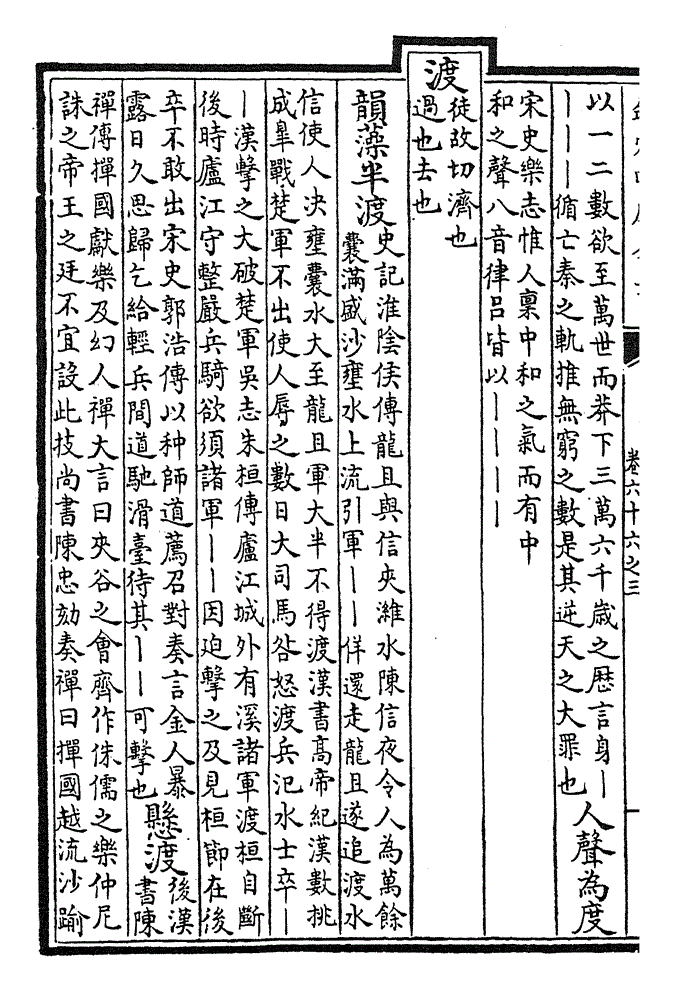 卷六十六之三
以一二數欲至萬世而莽下三萬六千歲之厯言身丨
丨丨丨循亡秦之軌推無窮之數是其逆天之大罪也
人聲為度
宋史樂志惟人稟中和之氣而有中
和之聲八音律吕皆以丨丨丨丨
渡
徒故切濟也
過也去也
韻藻半渡
史記淮陰侯傳龍且與信夾濰水陳信夜令人為萬餘
囊滿盛沙壅水上流引軍丨丨佯還走龍且遂追渡水
信使人決壅囊水大至龍且軍大半不得渡漢書髙帝紀漢數挑
成臯戰楚軍不出使人辱之數日大司馬咎怒渡兵汜水士卒丨
丨漢擊之大破楚軍吳志朱桓傳廬江城外有溪諸軍渡桓自斷
後時廬江守整嚴兵騎欲須諸軍丨丨因迫擊之及見桓節在後
卒不敢出宋史郭浩傳以种師道薦召對奏言金人暴
露日久思歸乞給輕兵間道馳滑臺待其丨丨可擊也
懸渡
後漢
書陳
禪傳撣國獻樂及幻人禪大言曰夾谷之會齊作侏儒之樂仲尼
誅之帝王之廷不宜設此技尚書陳忠劾奏禪曰撣國越流沙踰